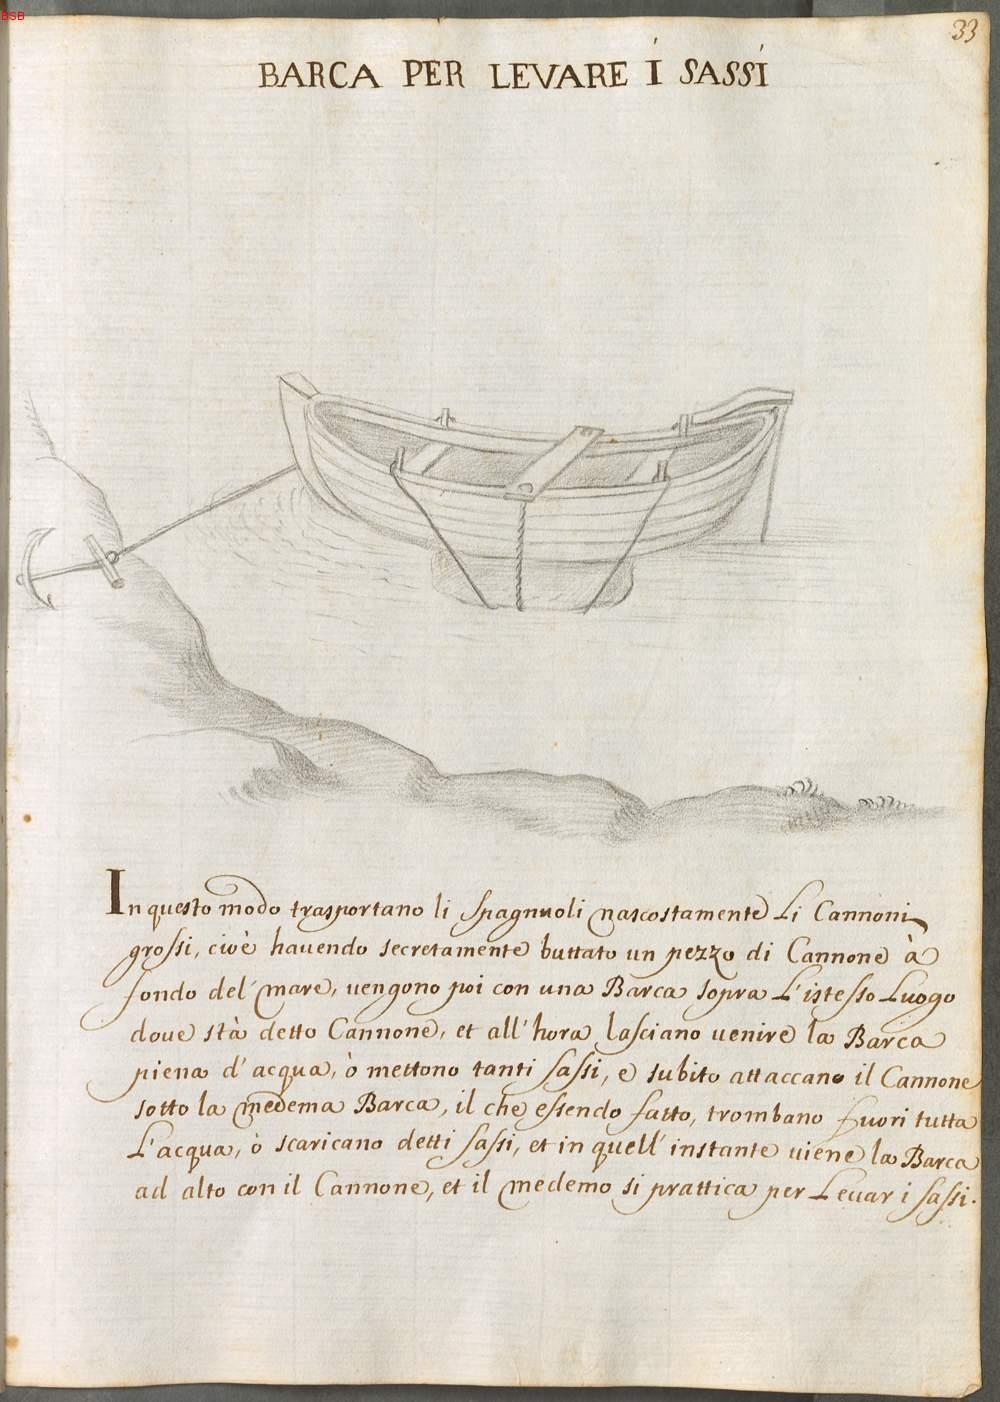 BSB
33
BARCA PER LEVARE I SASSI
In questo modo trasportano li Spagnuoli nascostamente Li Cannoni
grossi, cioè hauendo secretamente buttato un pezzo di Cannone à
fondo del' mare, uengono poi con una Barca sopra L'istesso Luogo
doue stà detto Cannone, et all'hora lasciano uenire la Barca
piena d'acqua, ò mettono tanti sassi, e subito attaccano il Cannone
sotto la medema Barca, il che essendo fatto, trombano fuori tutta
L'acqua, ò scaricano detti sassi, et in quell' instante uiene la Barca
ad alto con il Cannone, et il medemo si prattica per Leuar i sassi.